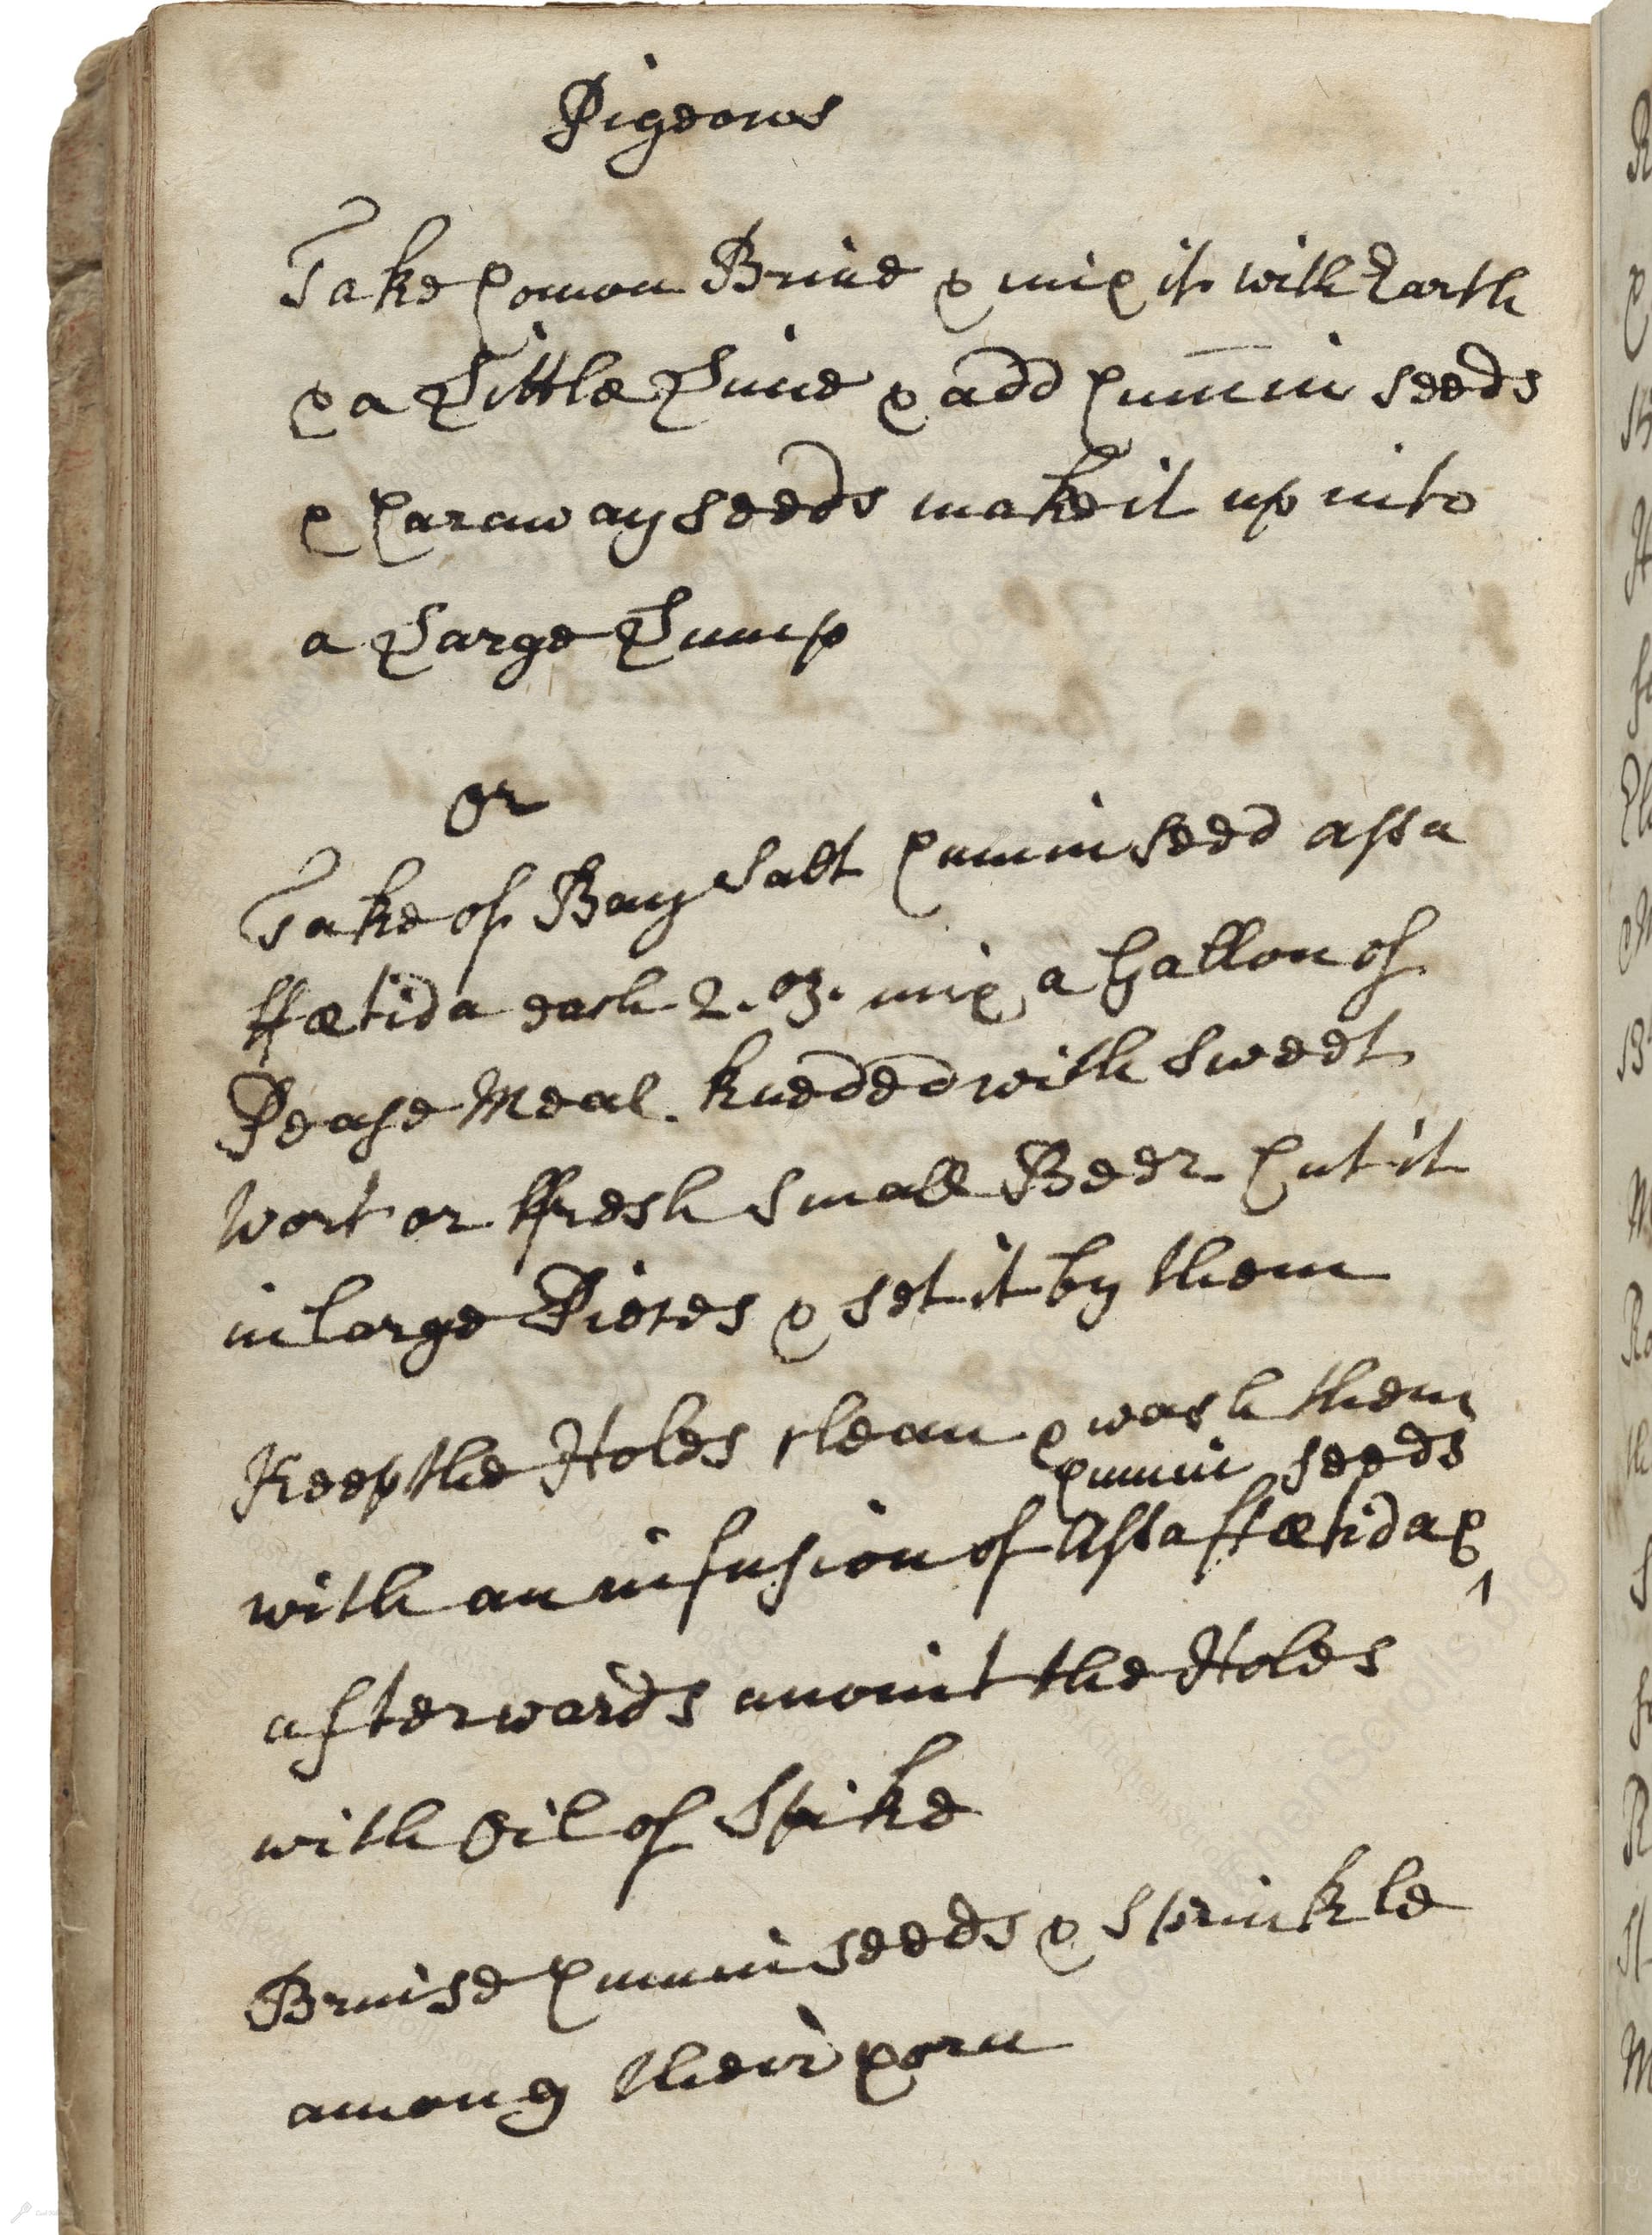 Pigeons
Take Comon Brine & mix it with Earth
& a Little Lime & add Cum̄in seeds
& Caraway seeds make it up into
a Large Lump
or
Take of Bay Salt Cumin seed assa
ffætida each 2. oz. mix a Gallon of
Pease Meal. kneded with sweet
Wort or ffresh small Beer Cut it
in large Pieces & set it by them
Keep the Holes clean & wash them
Cumin seeds
with an infusion of Assa ffætida & ‸
afterwards anoint the Holes
with Oil of Spike
Bruise Cumin seeds & sprinkle
among their Corn